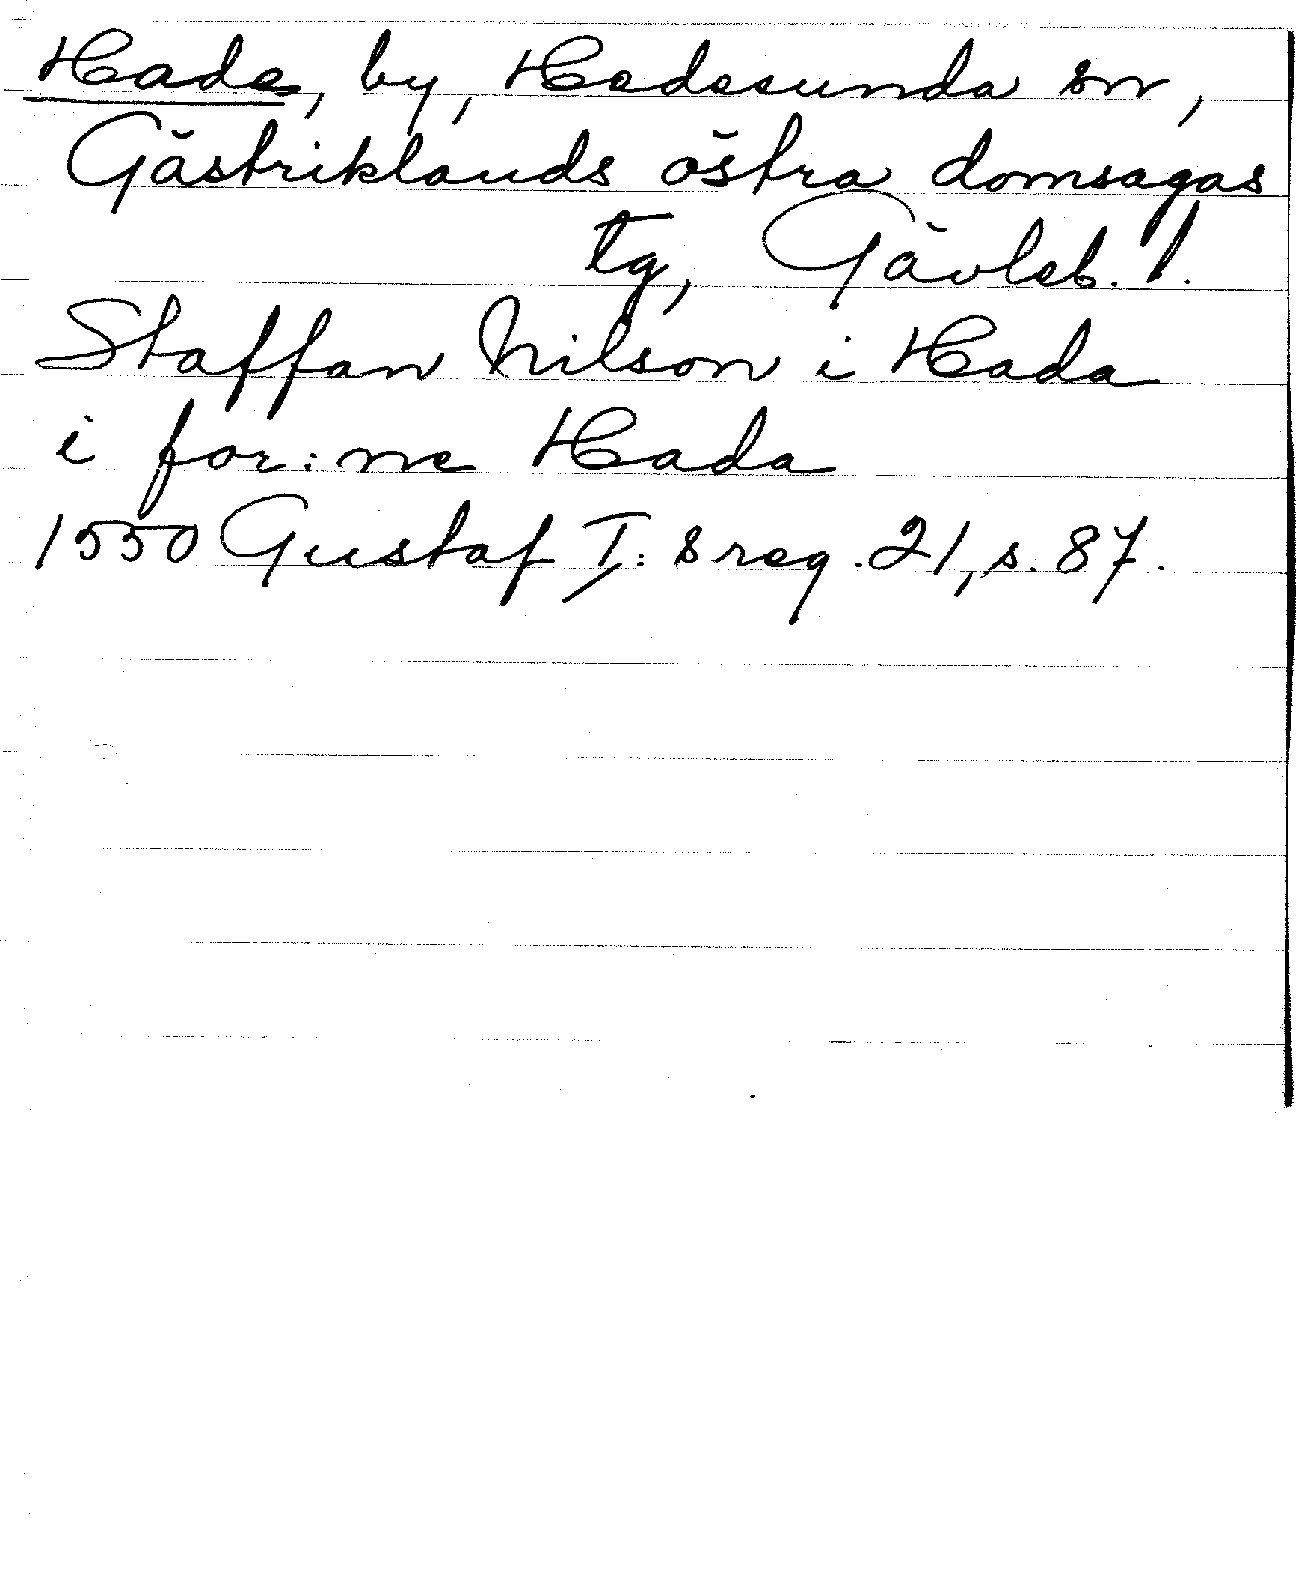 Hade, by, Hedesunda sn,
Gästriklands östra domsagas
tg, Gävleb. l.
Staffan Nilson i Hada
i for:ne Hada
1550 Gustaf I:s reg. 21, s. 87.